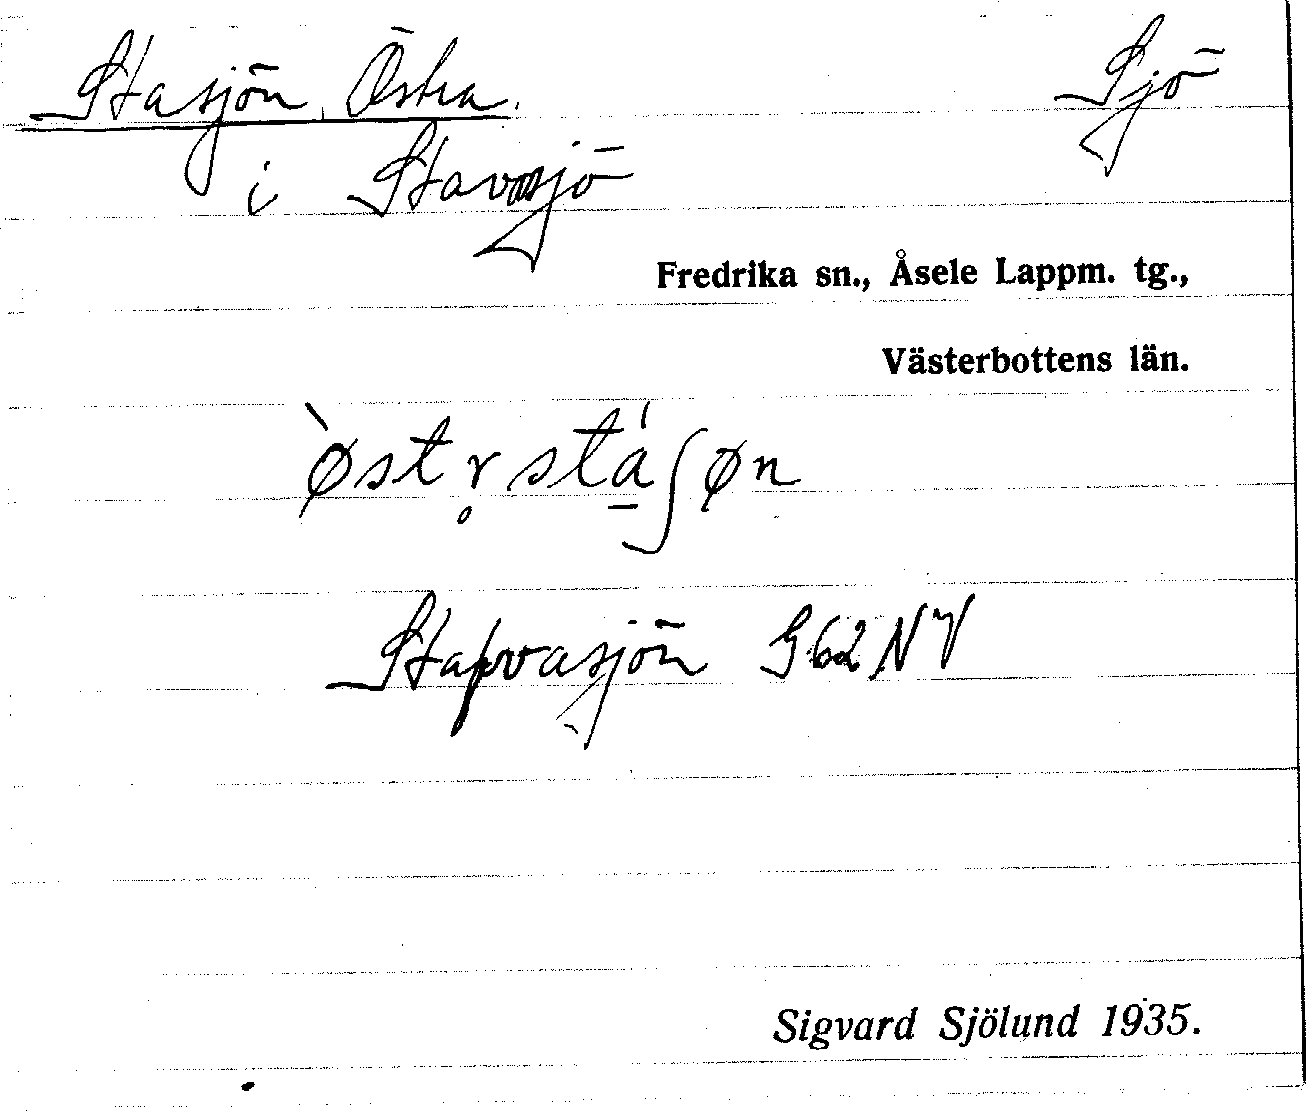 Stasjön, Östra. Sjö
i Stavsjö
Fredrika sn., Åsele Lappm. tg.,
Västerbottens län.
`østr̥stá̠ʃøn
Stavasjön G62NV
Sigvard Sjölund 1935.